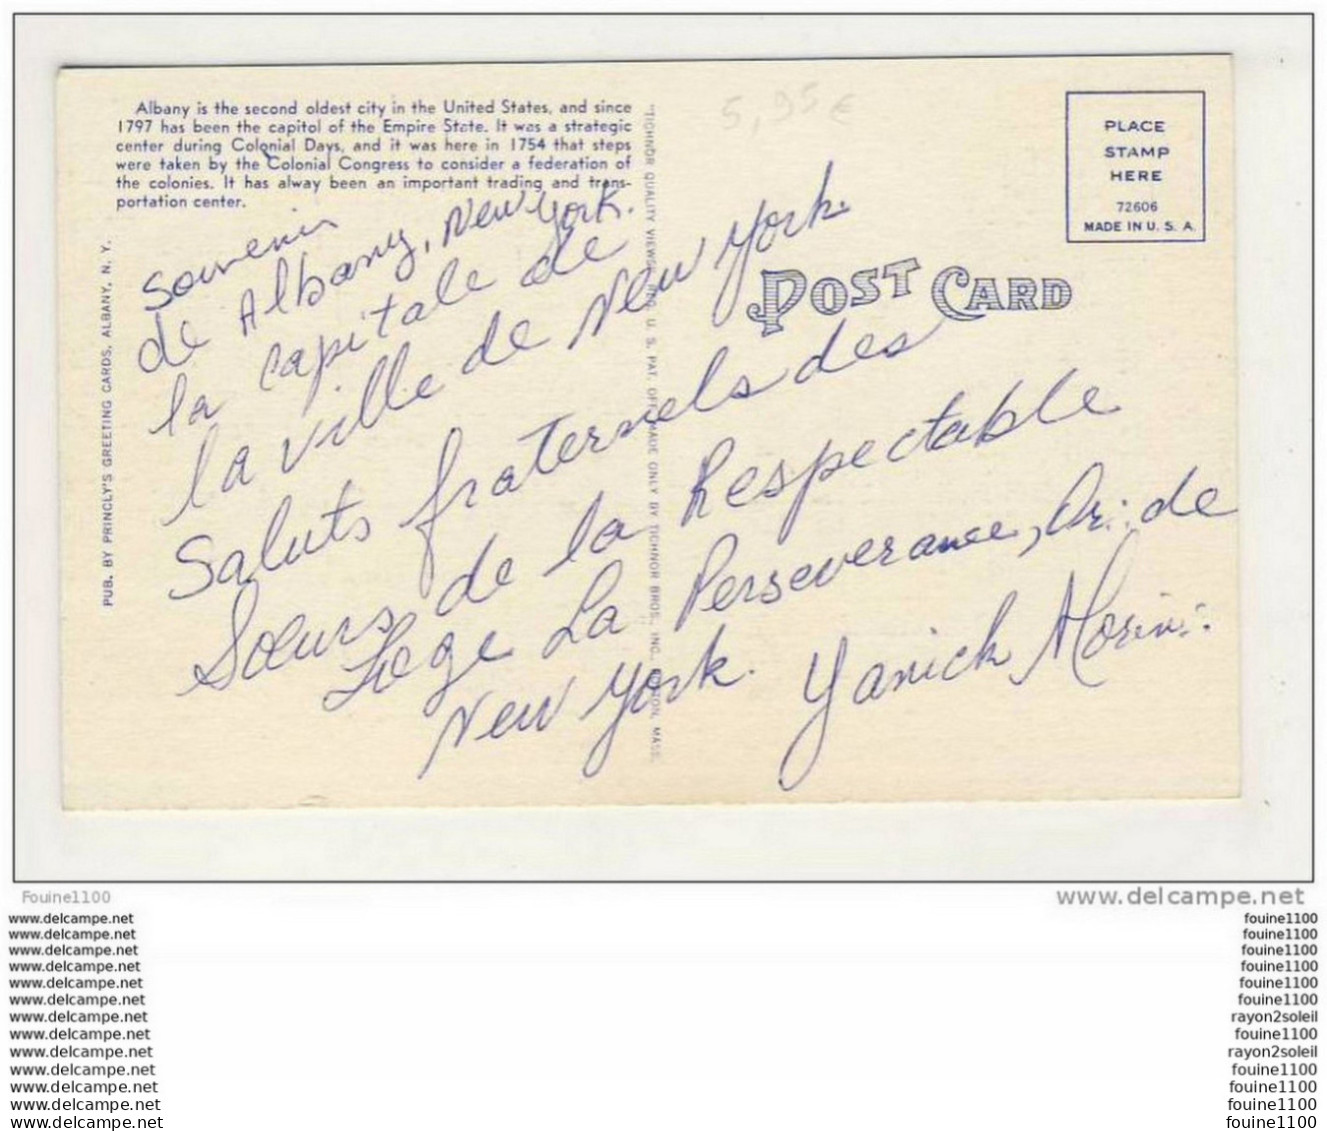 Albany is the second oldest city in the United States, and since
1797 has been the capitol of the Empire State. It was a strategic
center during Colonial Days, and it was here in 1754 that steps
were taken by the Colonial Congress to consider a federation of
the colonies. It has alway been an important trading and trans-
portation center.
5,95 €
PLACE
STAMP
HERE
72606
MADE IN U. S. A.
POST CARD
PUB. BY PRINCLY'S GREETING CARDS, ALBANY, N. Y.
"TICHNOR QUALITY VIEWS," REG. U. S. PAT. OFF. MADE ONLY BY TICHNOR BROS., INC., BOSTON, MASS.
Souvenir
de Albany, New York.
la capitale de
la ville de New York.
Saluts fraternels des
Sœurs de la Respectable
Loge La Perseverance, Or∴ de
New York. Yanick Morin∴
Fouine1100
www.delcampe.net
www.delcampe.net
www.delcampe.net
www.delcampe.net
www.delcampe.net
www.delcampe.net
www.delcampe.net
www.delcampe.net
www.delcampe.net
www.delcampe.net
www.delcampe.net
www.delcampe.net
www.delcampe.net
www.delcampe.net
fouine1100
fouine1100
fouine1100
fouine1100
fouine1100
fouine1100
rayon2soleil
fouine1100
rayon2soleil
fouine1100
fouine1100
fouine1100
fouine1100